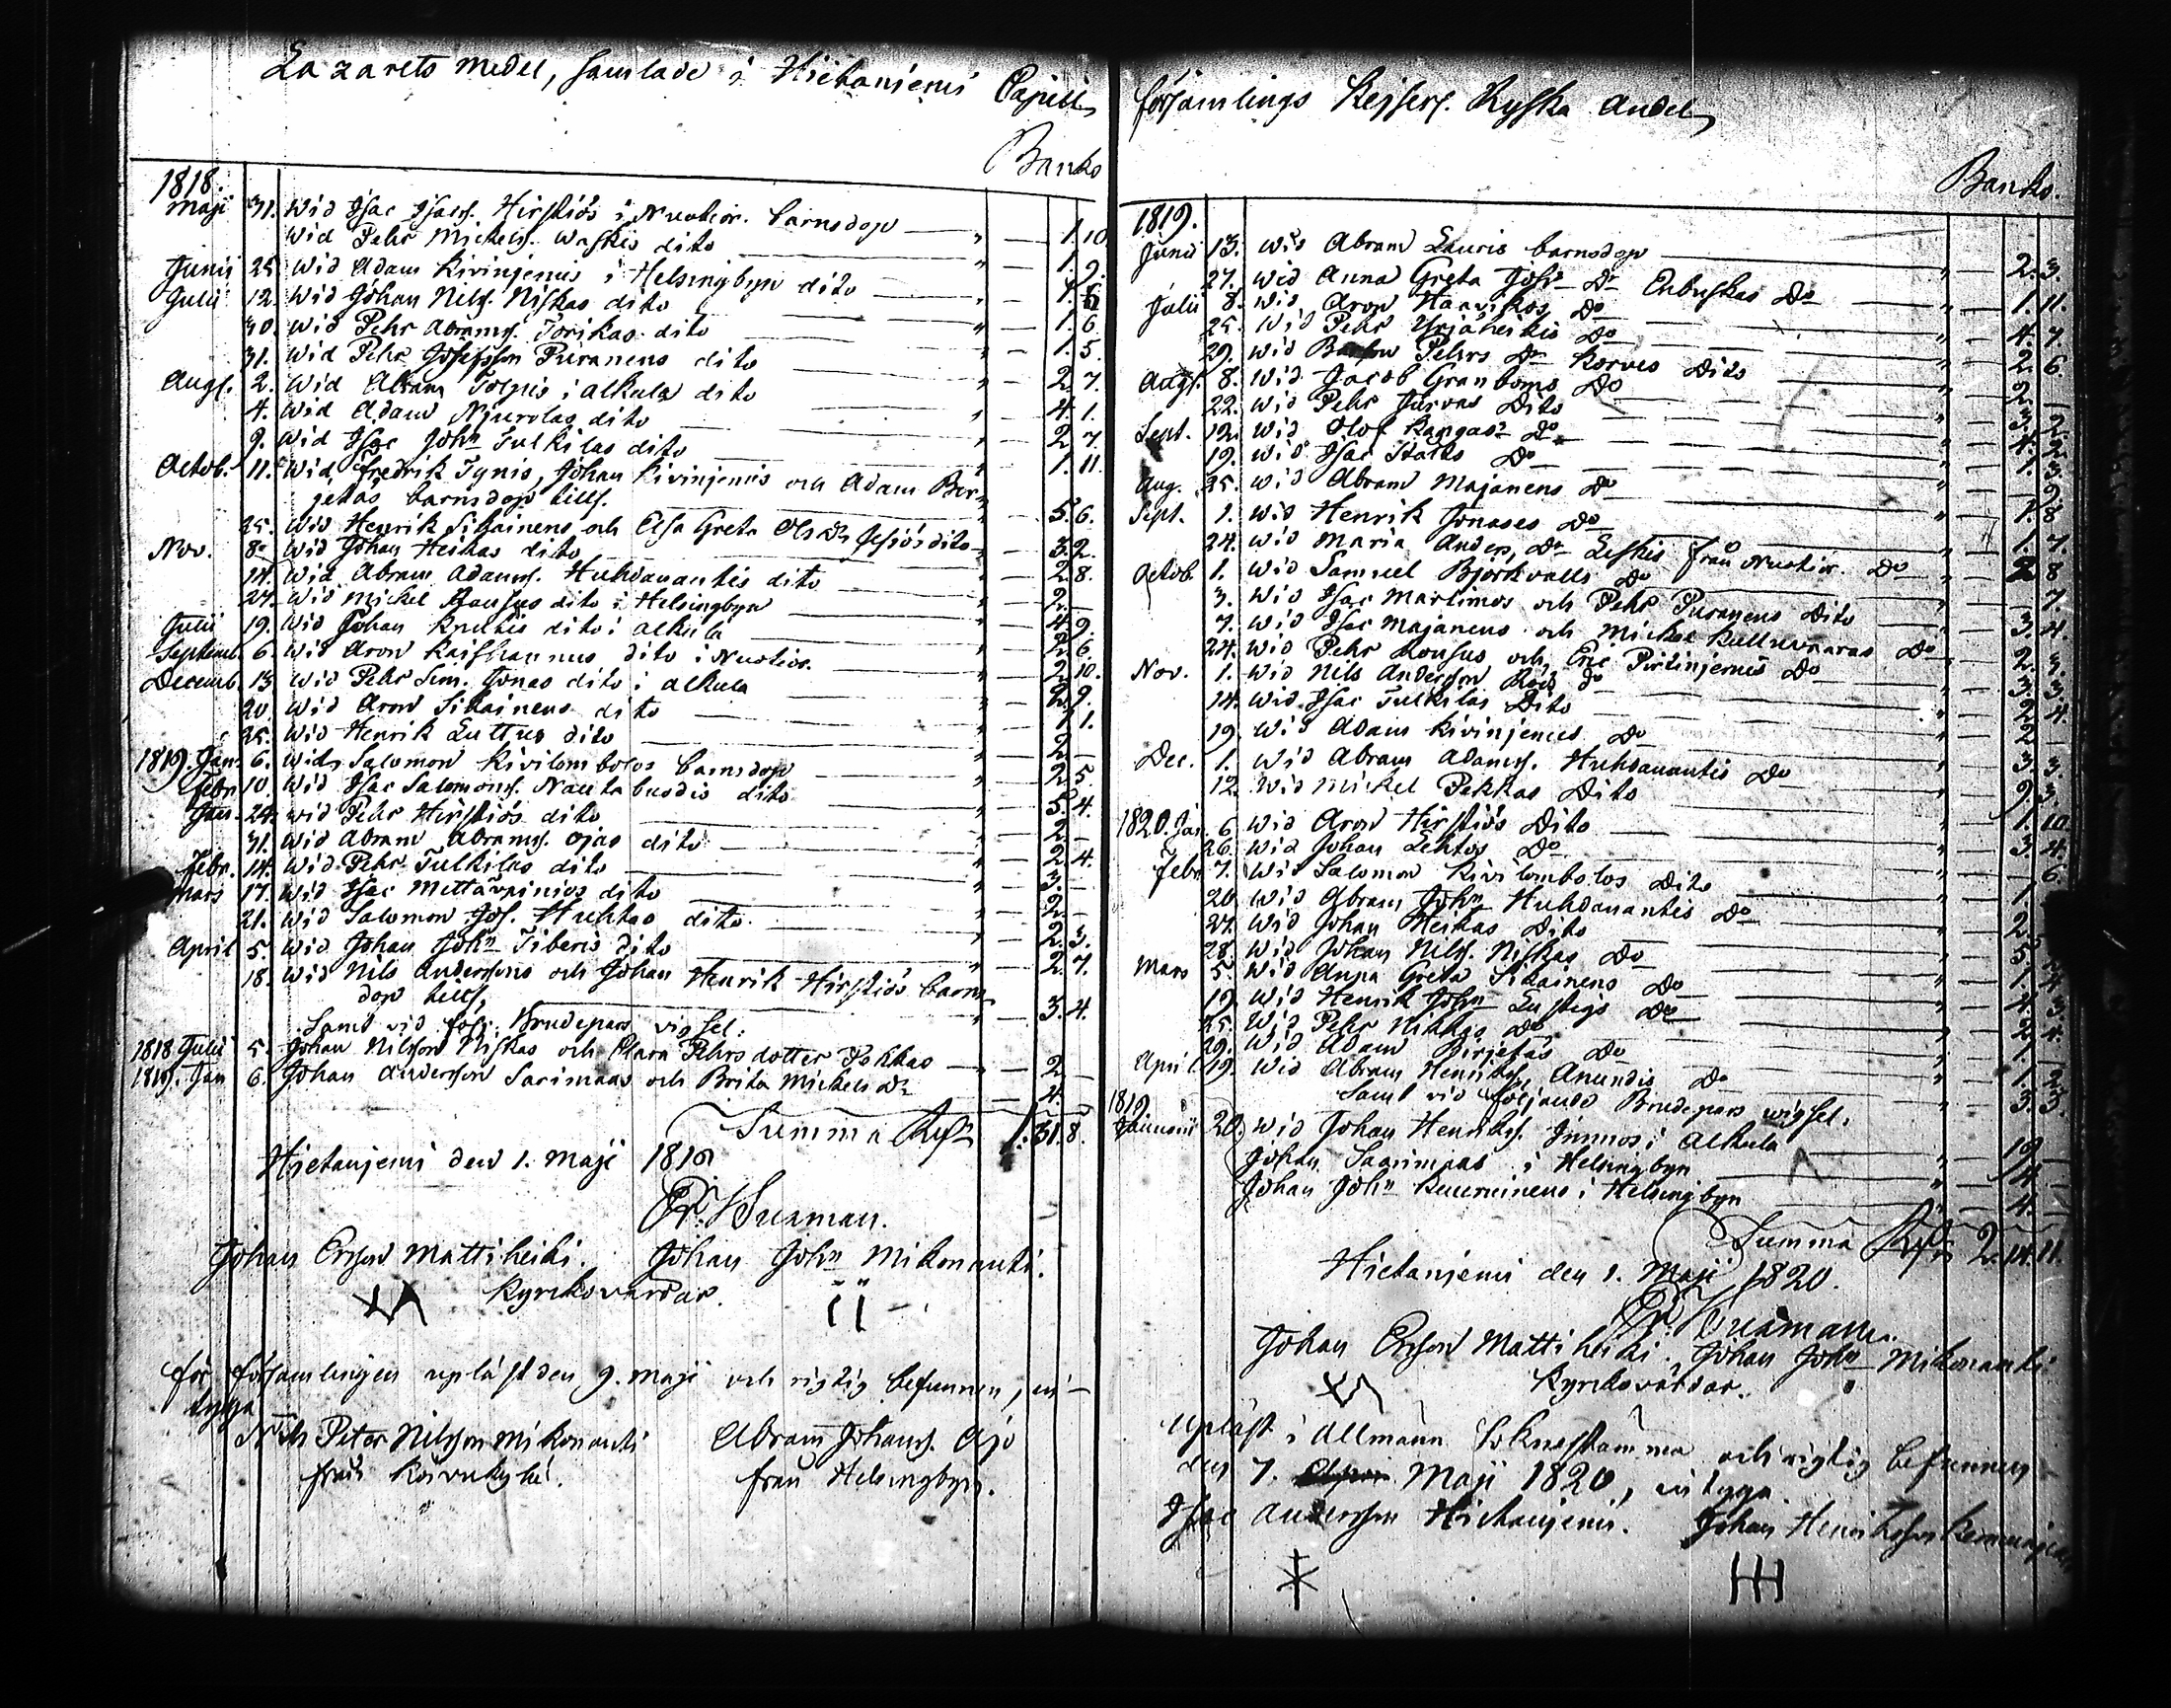 Lazarets medel, samlade i Hietaniemi Capell
Banko
1818.
Maji 31. Wid Isac Isacs. Hirstiös i Nuotior. barnsdop — " — 1. 10.
Wid Pehr Mickels. Waskis dito — " — 1. 9.
Junii 25. Wid Adam Kivinjemis i Helsingbyn dito — " — 1. 6
Julii 12. Wid Johan Nils. Niskas dito — " — 1. 6.
30. Wid Pehr Abrams. Torikas dito — " — 1. 5.
31. Wid Pehr Josephsson Puranens dito — " — 2. 7.
Augs. 2. Wid Abram Tolpis i Alkula dito — " — 4. 1.
4. Wid Adam Njurolas dito — " — 2. 7.
9. Wid Isac Johsn Tulkilas dito — " — 1. 11.
Octob. 11. Wid Fredrik Tynis, Johan Kivinjemis och Adam Bir-
jetas barnsdop tills. — 5. 6.
25. Wid Henrik Sikainens och Elsa Greta Ols Dr Jesiös dito — 3. 2.
Nov. 8. Wid Johan Heikas dito — " — 2. 8.
14. Wid Abram Adams. Huhdanantis dito — " — 2. —
27. Wid Mickel dito i Helsingbyn — " — 4. 9.
Julii 19. Wid Johan Knutis dito i Alkula — " — 2. 6.
Septemb. 6. Wid Aron Kaishannus dito i Nuotior. — " — 2. 10.
Decemb. 13 Wid Pehr Sim. Jonas dito i Alkula — " — 2. 9.
20. Wid Aron Sikainens dito — " — 1. 1.
25. Wid Henrik Luttus dito — " — 2. —
1819. Jan. 6. Wid Salomon Kivilombolos barnsdop — " — 2. 5.
Febr. 10. Wid Isac Salomons. Nautabuodis dito — " — 5. 4.
Jan. 24. Wid Pehr Hirstiös dito — " — 2. —
31. Wid Abram Abrams. Ojas dito — " — 2. 4.
Febr. 14. Wid Pehr Tulkilas dito — " — 3. —
Mars 17. Wid Isac Mettävainios dito — " — 2. —
21. Wid Salomon Jos. Huhtas dito — " — 2. 3.
April 5. Wid Johan Johsn Tiberis dito — " — 2. 7.
18. Wid Nils Anderssons och Johan Henrik Hirstiös barns
dop tills, — " — 3. 4.
Saml vid följ. Brudepars vigsel:
1818 Julii 5. Johan Nilsson Niskas och Clara Pehrs dotter Pekkas — 2. —
1819. Jan 6. Johan Andersson Sarimaas och Brita Mickels Dr — 4. —
Summa Rdr 1. 31. 8.
Hietanjemi den 1. Maji 1819
Er. Wuaman.
Johan Ersson Mattiheiki. Johan Johsn Mikonanti.
Kyrkovärdar.
för församlingen uplåst den 9. Maji och rigtig befunnen, in-
tyga
Nils Peter Nilsson Mikonanti Abram Johans. Ajo
från Koivukylä. från Helsingbyn.
församlings Kejserl. Ryska Andel
Banko.
1819.
Junii 13. Wid Abram Lauris barnsdop — " — 2. 3.
27. Wid Anna Greta Johsn Dr Enbuskas Do — " — 1. 11.
Julii 8. Wid Aron Haarikos Do — " — 4. 7
25. Wid Pehr Yrjäheikis Do — " — 2. 6.
29. Wid Pehrs Dr Korves Dito — " — 2. —
Augs. 8. Wid Jacob Granboms Do — " — 3. 2
22. Wid Pehr Turvas Dito — " — 4. 2
Sept. 12. Wid Olof Kangas Do — " — 1. 3.
19. Wid Isac Stålts Do — " — 9.
Aug. 25. Wid Abram Majanens Do — " — 1. 8.
Sept. 1. Wid Henrik Jonases Do — " — 1. 7.
24. Wid Maria Anders. Dr Leskis från Nuotior. Do — " — 2 8
Octob. 1. Wid Samuel Björkvalls Do — 7.
3. Wid Isac Martimos och Pehr Puranens Dito — 3. 4.
7. Wid Isac Majanens och Mickel Kulluvaaras Do — 2. 3.
24. Wid Pehr Kousus och Eric Pirtinjemis Do — 3. 3.
Nov. 1. Wid Nils Andersson Do — 2. 4.
14. Wid Isac Tulkilas Dito — 2. —
19. Wid Adam Kivinjemis Do — 3. 3.
Dec. 1. Wid Abram Adams. Huhdanantis Do — 9. 3.
12. Wid Mickel Pekkas Dito — " — 1. 10.
1820. Jan. 6 Wid Aron Hirstiös Dito — " — 3. 4.
26. Wid Johan Lehtos Do — " — 6.
Febr. 7. Wid Salomon Kivilombolos Dito — 1.
20. Wid Abram Johsn Huhdanantis Do — 2.
27. Wid Johan Heikas Dito — 5.
28. Wid Johan Nils. Niskas Do — 1. 4
Mars 5. Wid Anna Greta Sikainens Do — 4. 3.
19. Wid Henrik Johsn Lustigs Do — 2. 4.
25. Wid Pehr Nikkas Do — 1.
29. Wid Adam Birjetas Do — 1. 2.
April 19. Wid Abram Henrikss. Anundis Do — 3. 3.
Saml vid följande Brudepars vigsel.
1819.
20. Wid Johan Henrikss. Junnos i Alkula — 10 —
Johan Saarimaas i Helsingbyn — 4 —
Johan Johsn i Helsingbyn — 4. —
Summa Rdr 2. 14. 11.
Hietanjemi den 1. Maji 1820.
Er. Wuaman.
Johan Ersson Mattiheiki. Johan Johsn Mikonanti
Kyrkovärdar.
Upläst i Allmänn Soknestämma och rigtig befunnen
den 7. Maji 1820, intyga
Isac Andersson Hietanjemi. Johan Henriksson